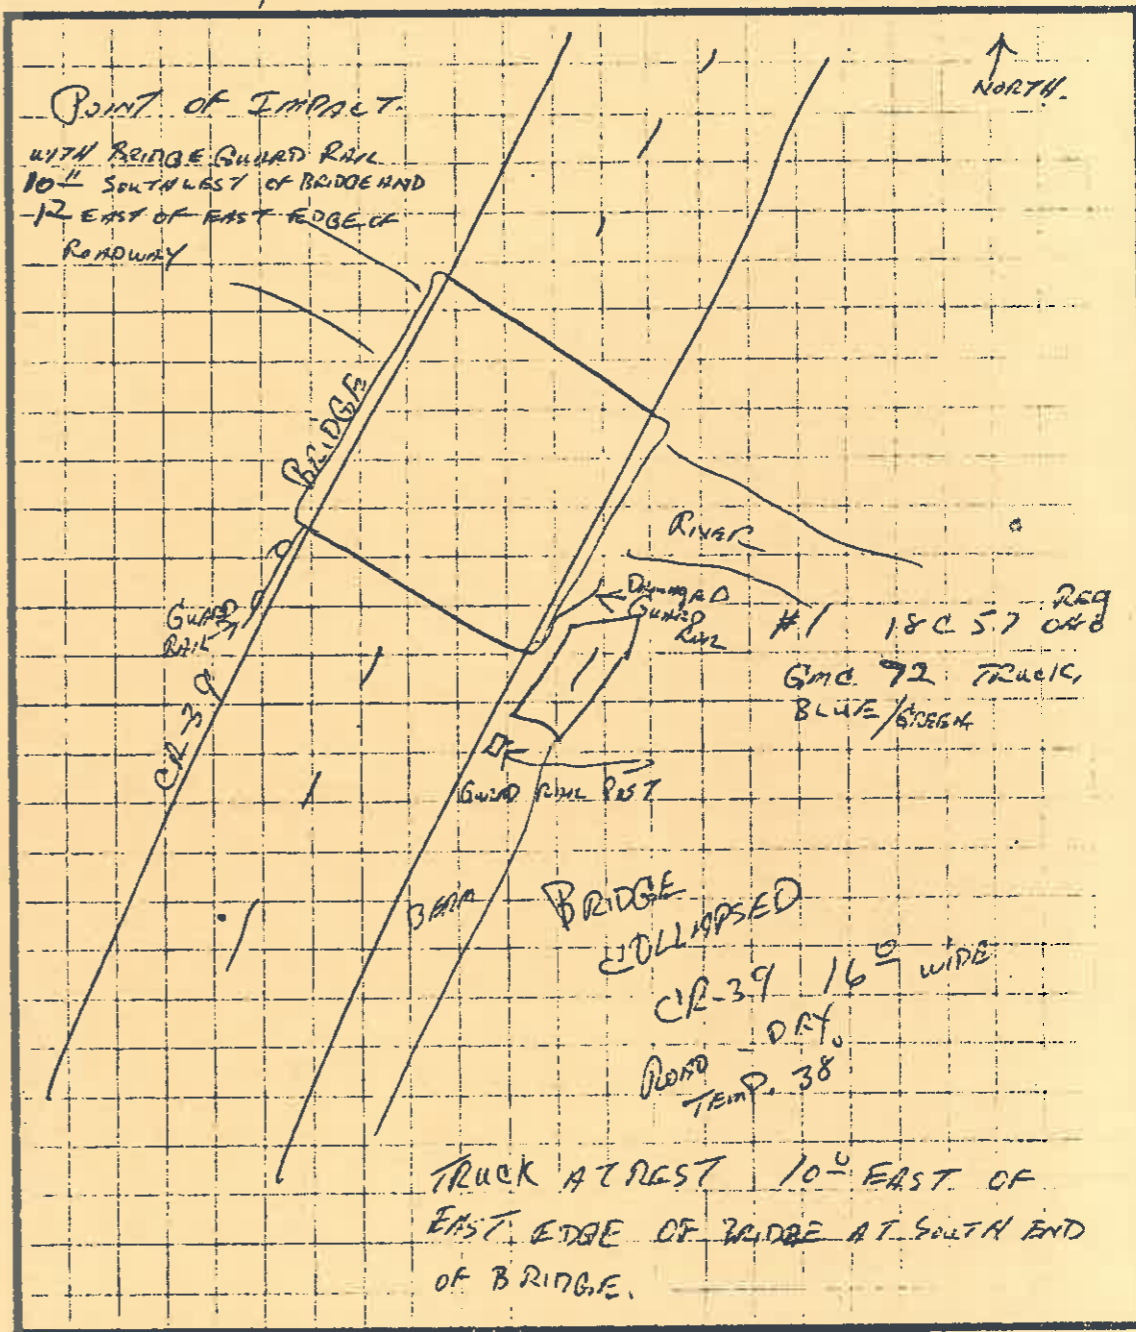 POINT OF IMPACT
WITH BRIDGE GUARD RAIL
10" SOUTHWEST OF BRIDGE AND
-12 EAST OF EAST EDGE OF
ROADWAY
NORTH.
BRIDGE
RIVER
DAMAGED
GUARD
RAIL
GUARD
RAIL
#1 18C 57 REG
GMC 92 TRUCK,
BLUE/GREEN
CR-39
GUARD RAIL POST
BERM
BRIDGE
COLLAPSED
CR-39 16 0 WIDE
ROAD - DRY.
TEMP. 38
TRUCK AT REST 10 0 EAST OF
EAST EDGE OF BRIDGE AT SOUTH END
OF BRIDGE.